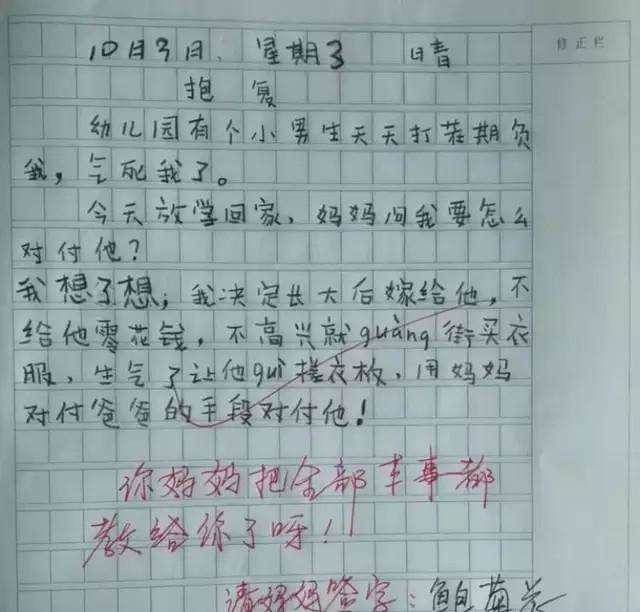 修正栏
10月3日、星期3 晴
抱复
幼儿园有个小男生天天打茬期负
我，气死我了。
今天放学回家、妈妈问我要怎么
对付他？
我想了想；我决定长大后嫁给他，不
给他零花钱，不高兴就guàng街买衣
服、生气了让他guì搓衣板、用妈妈
对付爸爸的手段对付他！
你妈妈把全部本事都
教给你了呀！
请妈妈签字：鲍